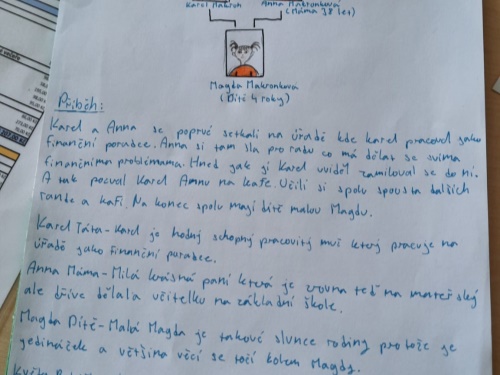 Karel Makroh
Anna Makronková
(Máma 38 let)
Magda Makronková
(Dítě 4 roky)
Příběh:
Karel a Anna se poprvé setkali na úřadě kde karel pracoval jako
finanční poradce. Anna si tam šla pro radu co má dělat se svíma
finančníma problémama. Hned jak jí Karel uviděl zamiloval se do ní.
A tak pozval Karel Annu na kafe. Učili si spolu spousta dalších
rande a kafí. Na konec spolu mají dítě malou Magdu.
Karel Táta-Karel je hodný schopný pracovitý muž který pracuje na
úřadě jako finanční poradce.
Anna Máma-Milá krásná paní která je zrovna teď na mateřský
ale dříve dělala učitelku na základní škole.
Magda Dítě-Malá Magda je takové slunce rodiny protože je
jedináček a většina věcí se točí kolem Magdy.